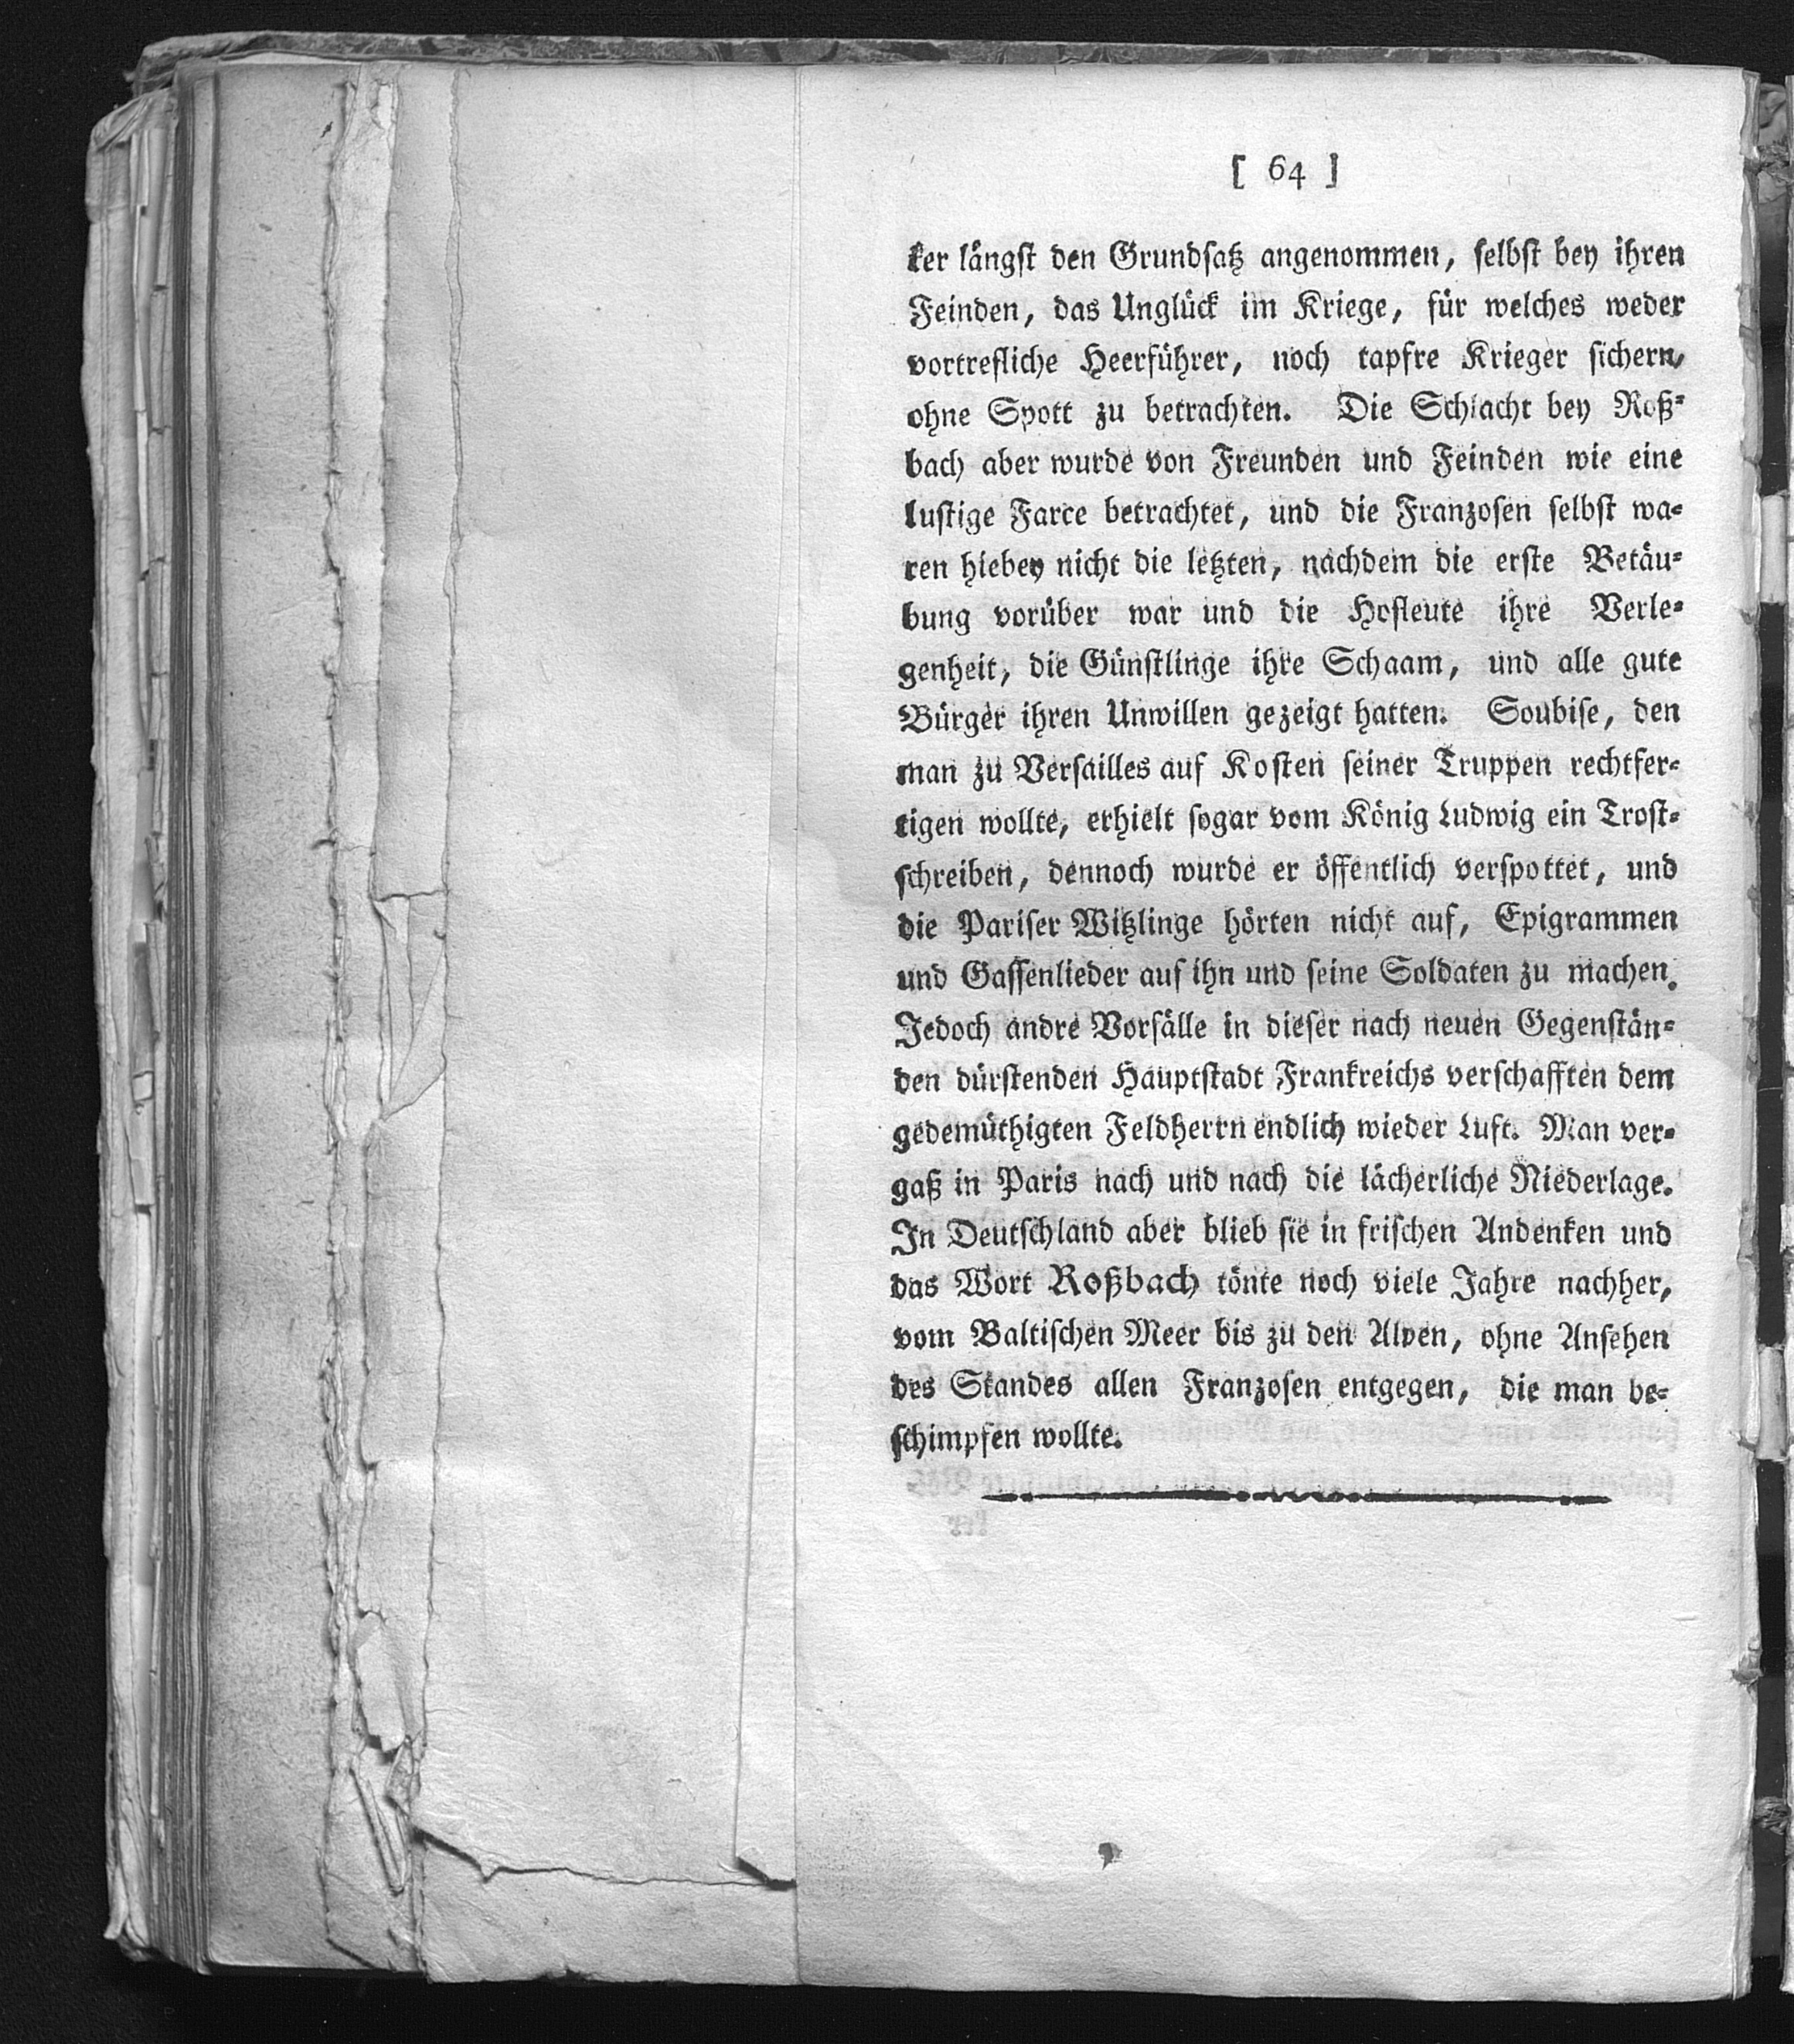 [ 64 ]
ker längst den Grundsatz angenommen, selbst bey ihren
Feinden, das Unglück im Kriege, für welches weder
vortrefliche Heerführer, noch tapfre Krieger sichern,
ohne Spott zu betrachten. Die Schlacht bey Roß-
bach aber wurde von Freunden und Feinden wie eine
lustige Farce betrachtet, und die Franzosen selbst wa-
ren hiebey nicht die letzten, nachdem die erste Betäu-
bung vorüber war und die Hofleute ihre Verle-
genheit, die Günstlinge ihre Schaam, und alle gute
Bürger ihren Unwillen gezeigt hatten. Soubise, den
man zu Versailles auf Kosten seiner Truppen rechtfer-
tigen wollte, erhielt sogar vom König Ludwig ein Trost-
schreiben, dennoch wurde er öffentlich verspottet, und
die Pariser Witzlinge hörten nicht auf, Epigrammen
und Gassenlieder auf ihn und seine Soldaten zu machen.
Jedoch andre Vorfälle in dieser nach neuen Gegenstän-
den dürstenden Hauptstadt Frankreichs verschafften dem
gedemüthigten Feldherrn endlich wieder Luft. Man ver-
gaß in Paris nach und nach die lächerliche Niederlage.
In Deutschland aber blieb sie in frischen Andenken und
das Wort Roßbach tönte noch viele Jahre nachher,
vom Baltischen Meer bis zu den Alpen, ohne Ansehen
des Standes allen Franzosen entgegen, die man be-
schimpfen wollte.